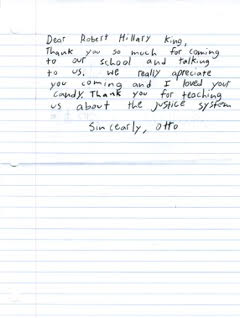 Dear Robert Hillary King,
Thank you so much for coming
to our school and talking
to us. We really apreciate
you coming and I loved your
candy. Thank you for teaching
us about the justice system
Sincearly, Otto